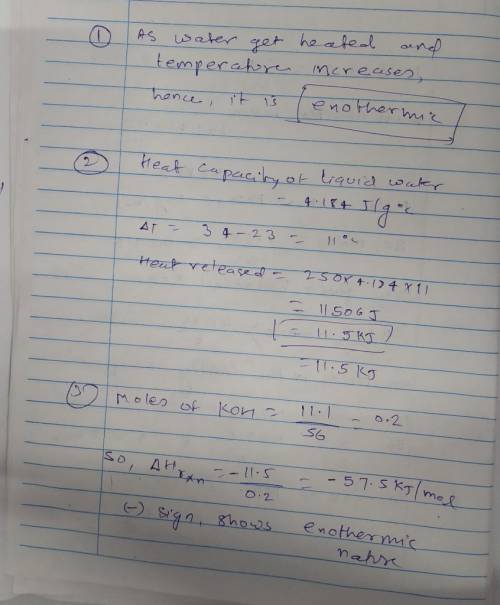 ① As water get heated and
temperature increases,
hence, it is enothermic
② Heat capacity of liquid water
= 4.184 J/g°c
ΔT = 34-23 = 11°c
Heat released = 250×4.184×11
= 11506J
= 11.5KJ
= 11.5KJ
③ Moles of KOH = 11.1/56 = 0.2
So, ΔHrxn = -11.5/0.2 = -57.5KJ/mol
(-) sign, shows enothermic
nature